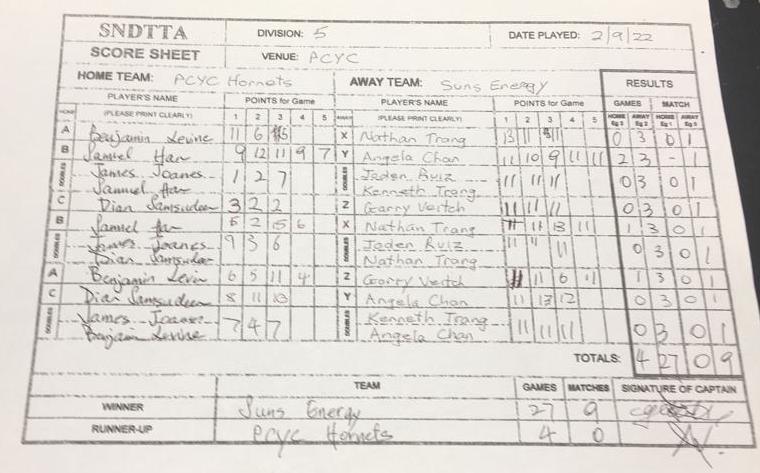 SNDTTA DIVISION: 5 DATE PLAYED: 2/9/22
SCORE SHEET VENUE: PCYC
HOME TEAM: PCYC Hornets AWAY TEAM: Suns Energy RESULTS
PLAYER'S NAME POINTS for Game PLAYER'S NAME POINTS for Game GAMES MATCH
HOME (PLEASE PRINT CLEARLY) 1 2 3 4 5 AWAY (PLEASE PRINT CLEARLY) 1 2 3 4 5 HOME Eg 2 AWAY Eg 3 HOME Eg 1 AWAY Eg 0
A Benjamin Levine 11 6 X Nathan Trang 13 11 11 0 3 0 1
B Samuel Har 9 12 11 9 7 Y Angela Chan 11 10 9 11 11 2 3 - 1
DOUBLES James Joanes 1 2 7 DOUBLES Jaden Ruiz 11 11 11 0 3 0 1
Samuel Har Kenneth Trang
C Dian Samsudeen 3 2 2 Z Garry Veitch 11 11 11 0 3 0 1
B Samuel Har 2 15 6 X Nathan Trang 11 11 13 11 1 3 0 1
DOUBLES James Joanes 9 3 6 DOUBLES Jaden Ruiz 11 11 11 0 3 0 1
Dian Samsudeen Nathan Trang
A Benjamin Levin 6 5 11 4 Z Garry Veitch 11 6 11 1 3 0 1
C Dian Samsudeen 8 11 10 Y Angela Chan 11 13 12 0 3 0 1
DOUBLES James Joanes 7 4 7 DOUBLES Kenneth Trang 11 11 11 0 3 0 1
Benjamin Levine Angela Chan
TOTALS: 4 27 0 9
TEAM GAMES MATCHES SIGNATURE OF CAPTAIN
WINNER Suns Energy 27 9
RUNNER-UP PCYC Hornets 4 0